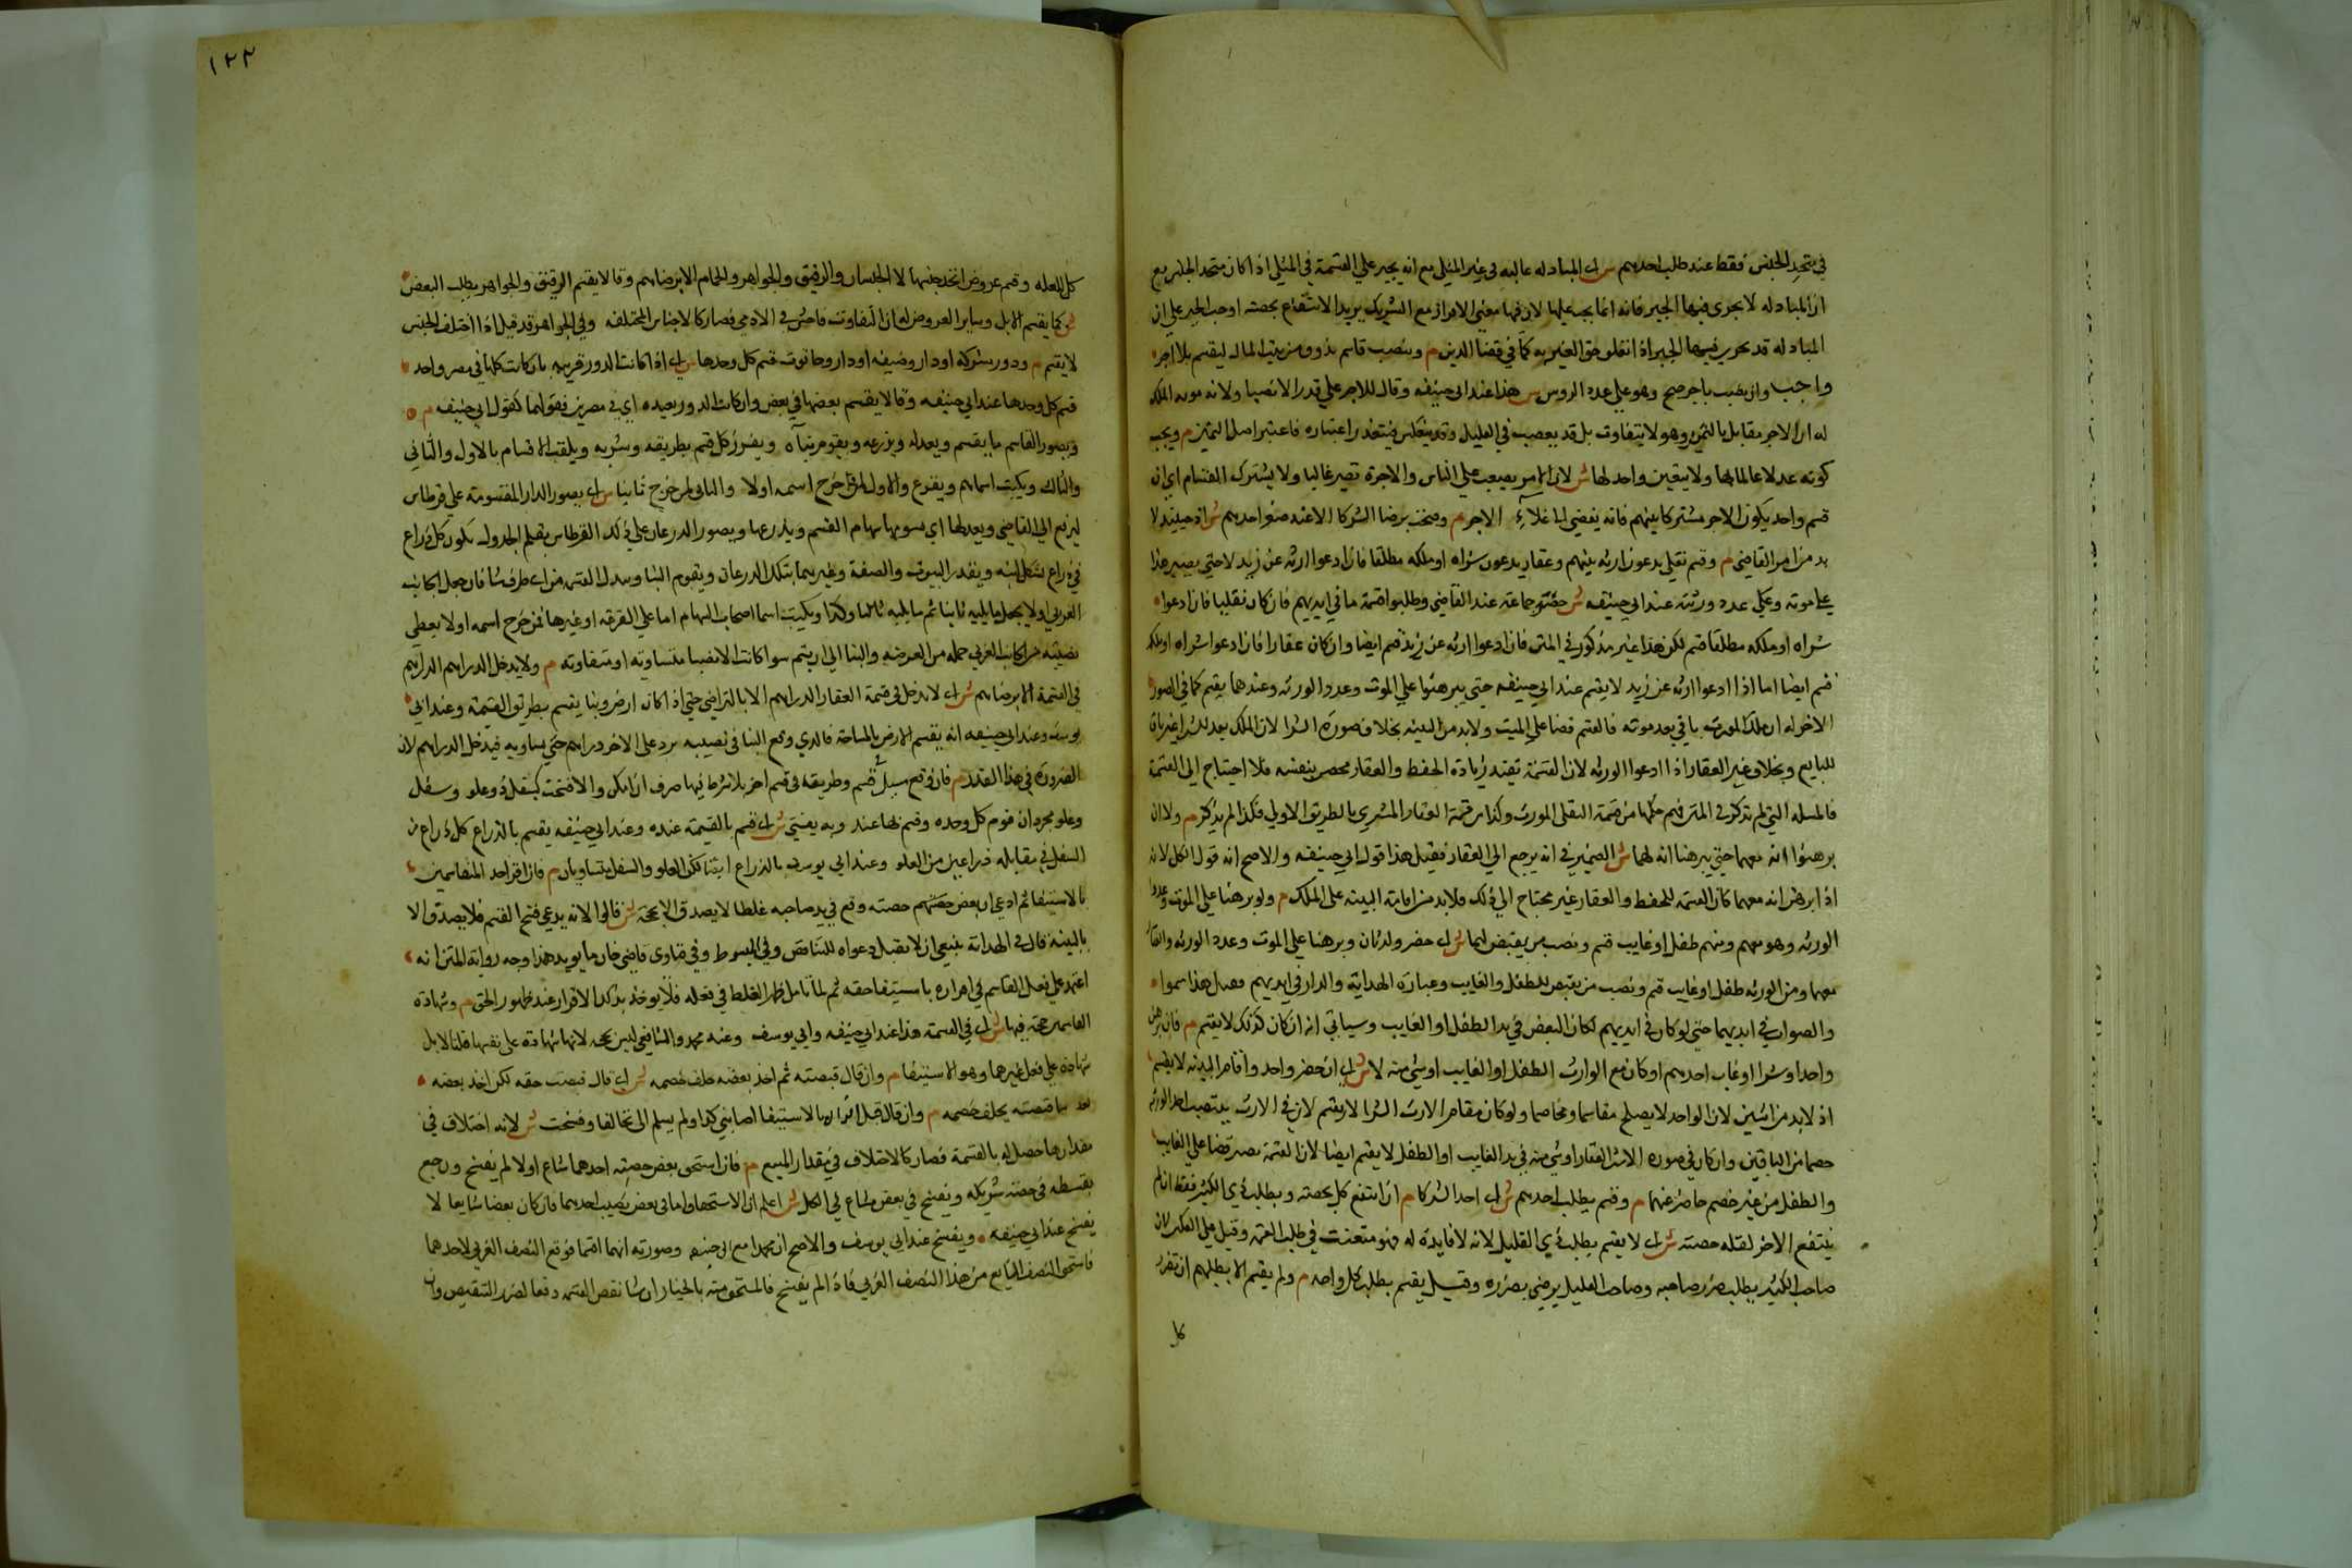 في متحد الجنس فقط عند طلب احدهم ش اي المبادله غالبه في غير المثلي مع انه يجبر علي القسمة في المثلي اذا كان متحد الجنس مع
ان المبادله لا يجري فيها الجبر فانه انما يجبر عليها لان فيها معني الافراز مع الشريك يريد الانتفاع بحصته اوجب الجبر علي ان
المبادله قد يجري فيها الجبر اذا تعلق حق الغير به كما في قضا الدين م وينصب قاسم يرزق من بيت المال ليقسم بلا اجر
واجب وان نصب باجر صح وهو علي عدد الروس ش هذا عند ابي حنيفه وقالا الاجر علي قدر الانصبا ولانه مونه الملك
له ان الاجر مقابل بالتميز وهو لا يتفاوت بل قد يصعب في القليل وقد ينعكس فيتعذر اعتباره فاعتبر اصل التميز م ويجب
كونه عدلا عالما بها ولا يتعين واحد لها ش لان الامر يصعب علي الناس والاجرة تصير غاليا ولا يشترك القسام اي ان
قسم واحد يكون الاجر مشتركا بينهم فانه يفضي الي غلاء الاجر م وصحت برضا الشركا الا عند صغر احدهم ش اذ حينئذ لا
بد من امر القاضي م وقسم نقلي يدعون ارثه بينهم وعقار يدعون شراه او ملكه مطلقا فان ادعوا ارثه عن زيد لا حتي يبرهنوا
علي موته وعلي عدد ورثته عند ابي حنيفه ش حضر جماعة عند القاضي وطلبوا قسمة ما في ايديهم فان كان نقليا فان ادعوا
شراه او ملكه مطلقا قسم لكن هذا غير مذكور في المتن فان ادعوا ارثه عن زيد قسم ايضا وان كان عقارا فان ادعوا شراه او ملكه
قسم ايضا اما اذا ادعوا ارثه عن زيد لا يقسم عند ابي حنيفه حتي يبرهنوا علي الموت وعدد الورثه وعندهما يقسم كما في الصور
الاخر له ان ملك المورث باقي بعد موته فالقسم قضا علي الميت ولا بد من البينه بخلاف صورة الشرا لان الملك بعد الشرا غير باق
للبايع وبخلاف غير العقار اذا ادعوا الورثه لان القسمة تفيد زيادة الحفظ والعقار محصن بنفسه فلا احتياج الي القسمة
فالمسله التي لم تذكر في المتن فهم حكمها من قسمة النقلي الموروث وكذا من قسمة العقار المشتري بالطريق الاولي فلذا لم يذكر م ولا ان
برهنوا انه معهما حتي يبرهنا انه لهما ش الضمير في انه يرجع الي العقار فقيل هذا قول ابي حنيفه والاصح انه قول الكل لانه
اذا برهن انه معهما كان القسمه للحفظ والعقار غير محتاج الي ذلك فلا بد من اقامة البينه علي الملك م ولو برهنا علي الموت وعدد
الورثه وهو معهم ومنهم طفل او غايب قسم ونصب من يقبض لهما ش اي حضر وارثان وبرهنا علي الموت وعدد الورثه والعقار
معهما ومن الورثه طفل او غايب قسم ونصب من يقبض للطفل والغايب وعبارة الهداية والدار في ايديهم فقيل هذا سهوا
والصواب في ايديهما حتي لو كان في ايديهم لكان البعض في يد الطفل او الغايب وسياتي انه ان كان كذلك لا يقسم م فان برهن
واحد او شرا او غاب احدهم او كان مع الوارث الطفل او الغايب او شي منه لا ش اي ان حضر واحد واقام البينه لا يقسم
اذ لا بد من اثنين لان الواحد لا يصلح مقاسما ومخاصما ولو كان مقام الارث الشرا لا يقسم لان في الارث ينتصب احد الورثه
خصما عن الباقين وان كان في صورة الارث العقار او شي منه في يد الغايب او الطفل لا يقسم ايضا لان القسمة تصير قضا علي الغايب
والطفل من غير خصم حاضر عنهما م وقسم بطلب احدهم ش اي احد الشركا م ان انتفع كل بحصته وبطلب ذي الكثير فقط ان لم
ينتفع الاخر لقله حصته ش اي لا يقسم بطلب ذي القليل لانه لا فايدة له فهو متعنت في طلب القسمه وقيل علي العكس لان
صاحب الكثير يطلب ضرر صاحبه وصاحب القليل يرضي بضرره وقيل يقسم بطلب كل واحد م ولم يقسم الا بطلبهم ان تضرر
كل
١٢٣
كل للقله وقسم عروض اتحد جنسها لا الجنسان والرقيق والجواهر والحمام الا برضاهم وقالا يقسم الرقيق والجواهر بطلب البعض
ش كما يقسم الابل وساير العروض له ان التفاوت فاحش في الادمي فصار كالاجناس المختلفه وفي الجواهر قد قيل اذا اختلف الجنس
لا يقسم م ودور مشتركه او دار وضيعه او دار وحانوت قسم كل وحدها ش اي اذا كانت الدور قريبه بان كانت كلها في مصر واحد
قسم كل وحدها عند ابي حنيفه وقالا يقسم بعضها في بعض وان كانت الدور بعيده اي في مصرين فقولهما كقول ابي حنيفه م
ويصور القاسم ما يقسم ويعدله ويذرعه ويقوم بناه ويفرز كل قسم بطريقه وشربه ويلقب الاقسام بالاول والثاني
والثالث ويكتب اسماهم ويقرع والاول لمن خرج اسمه اولا والثاني لمن خرج ثانيا ش اي يصور الدار المقسومة علي قرطاس
ليرفع الي القاضي ويعدلها اي يسويها سهام القسم ويذرعها ويصور الذرعان علي ذلك القرطاس بقلم الجدول ليكون كل ذراع
في ذراع بشكل لبنه ويقدر البيوت والصفة وغيرهما بتلك الذرعان ويقوم البنا ويبدا القسم من اي طرف شا فان جعل الجانب
الغربي اولا يجعل ما يليه ثانيا ثم ما يليه ثالثا وكذا ويكتب اسما اصحاب السهام اما علي القرعه او غيرها فمن خرج اسمه اولا يعطي
نصيبه من الجانب الغربي جمله من العرصه والبنا الي ان يتم سوا كانت الانصبا متساوته او متفاوته م ولا يدخل الدراهم
في القسمة الا برضاهم ش اي لا يدخل في قسمة العقار الدراهم الا بالتراضي حتي اذا كان ارض وبنا يقسم بطريق القيمة وعند ابي
يوسف وعند ابي حنيفه انه يقسم الارض بالمساحة فالذي وقع البنا في نصيبه يرد علي الاخر دراهم حتي يساويه فيدخل الدراهم لان
الضرورة في هذا القدر م فان وقع مسيل قسم وطريقه في قسم اخر بلا شرط فيها صرف ان امكن والا فسخت كسفل ذو علو وسفل
وعلو مجردان قوم كل وحده وقسم بها عند وبه يفتي ش اي قسم بالقيمة عنده وعند ابي حنيفه يقسم بالذراع كل ذراع من
السفل في مقابله ذراعين من العلو وعند ابي يوسف بالذراع ايضا لكن العلو والسفل متساويان م فان اقر احد المتقاسمين
بالاستيفا ثم ادعي ان بعض حصته وقع في يد صاحبه غلطا لا يصدق الا بحجة ش قالوا لانه يدعي فسخ القسم فلا يصدق الا
بالبينه قال في الهداية ينبغي ان لا تقبل دعواه للتناقض وفي المبسوط وفي فتاوي قاضي خان ما يويد هذا وجه رواية المتن انه
اعتمد علي فعل القاسم في اقراره باستيفا حقه ثم لما تامل ظهر الغلط في فعله فلا يوخذ بذلك الاقرار عند ظهور الحق م وشهادة
القاسمين حجة فيها ش اي في القسمه هذا عند ابي حنيفه وابي يوسف وعند محمد والشافعي ليس بحجه لانها شهادة علي نفسها قلنا لا بل
شهادة علي فعل غيرهما وهو الاستيفا م وان قال قبضته ثم اخذ بعضه حلف خصمه ش اي قال قبضت حقه لكن اخذ بعضه
بعد ما قبضته يحلف خصمه م وان قال قبل اقراره بالاستيفا اصابني كذا ولم يسلم الي تحالفا وفسخت ش لانه اختلاف في
مقدار ما حصل له بالقسمة فصار كالاختلاف في مقدار المبيع م فان استحق بعض حصته احدهما شاع او لا لم يفسخ ورجع
بقسطه في حصة شريكه ويفسخ في بعض شاع في الكل ش اعلم ان الاستحقاق اما في بعض نصيب احدهما فان كان بعضا شايعا لا
يفسخ عند ابي حنيفه ويفسخ عند ابي يوسف والاصح ان محمدا مع ابي حنيفه وصورته انهما اقتسما فوقع النصف الغربي لاحدهما
فاستحق النصف الشايع من هذا النصف الغربي فاذا لم يفسخ فالمستحق منه بالخيار ان شا نقض القسمه دفعا لضرر التشقيص وان